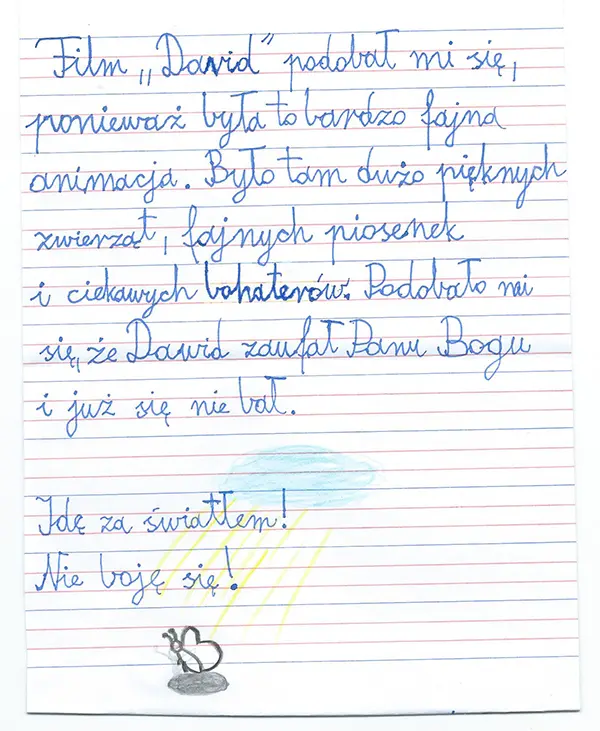 Film „David” podobał mi się,
ponieważ była to bardzo fajna
animacja. Było tam dużo pięknych
zwierząt, fajnych piosenek
i ciekawych bohaterów. Podobało mi
się, że Dawid zaufał Panu Bogu
i już się nie bał.
Idę za światłem!
Nie boję się!